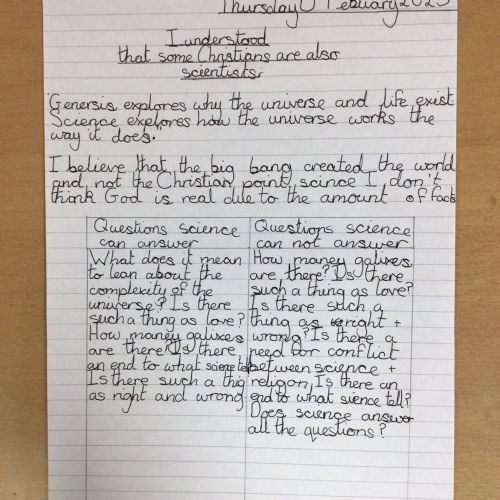 Thursday February 2023
I understood
that some Christians are also
scientists.
"Genersis explores why the universe and life exist.
Science explores how the universe works the
way it does."
I believe that the big bang created the world
and not the Christian point, scince I don't
think God is real due to the amount of facts
Questions science
can answer
What does it mean
to lean about the
complexity of the
universe? Is there
such a thing as love?
How maney galixes
are there? Is there
an end to what science tell
Is there such a thig
as right and wrong
Questions science
can not answer
How maney galixes
are there? Is there
such a thing as love?
Is there such a
thing as right +
wrong? Is there a
need for conflict
between science +
religon, Is there an
end to what sience tell?
Does science answer
all the questions?